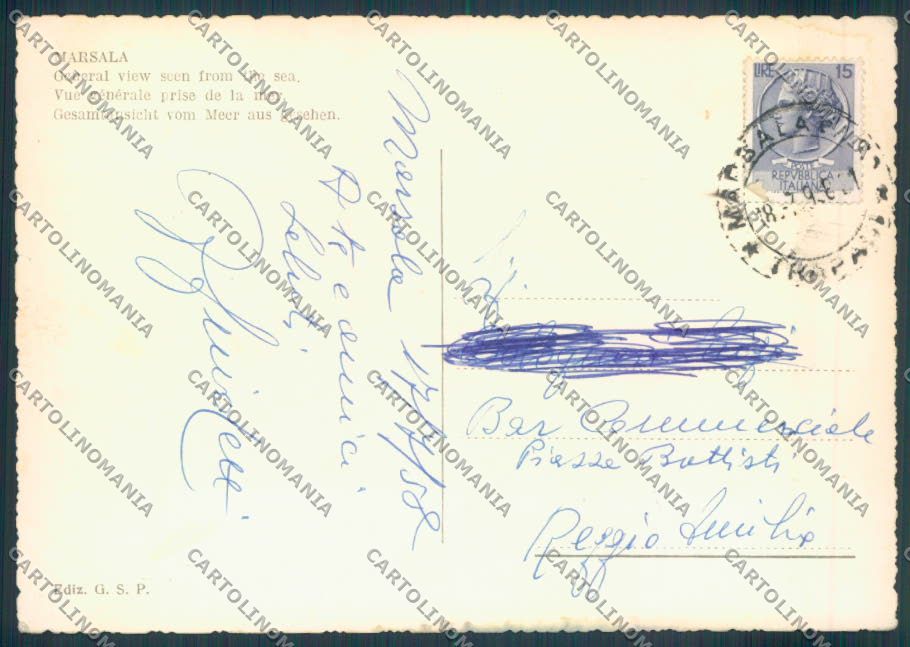 MARSALA
General view seen from the sea.
Vue générale prise de la mer.
Gesamtansicht vom Meer aus gesehen.
Marsala 17/7/58
A te e amici
Saluti
LIRE 15
POSTE
REPVBBLICA
ITALIANA
MARSALA
TRAPANI
Sig.
Bar Commerciale
Piazza Battisti
Reggio Emilia
Ediz. G. S. P.
CARTOLINOMANIA